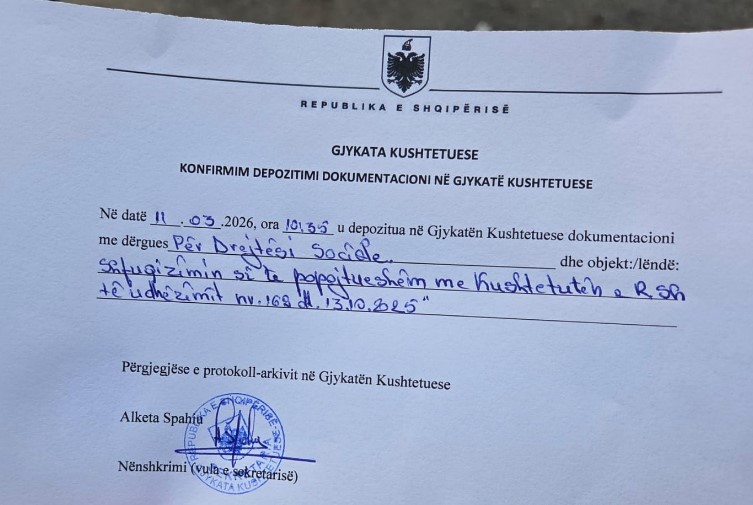 REPUBLIKA E SHQIPËRISË
GJYKATA KUSHTETUESE
KONFIRMIM DEPOZITIMI DOKUMENTACIONI NË GJYKATË KUSHTETUESE
Në datë 11.03.2026, ora 10:35 u depozitua në Gjykatën Kushtetuese dokumentacioni
me dërgues Për Drejtësi Sociale dhe objekt:/lëndë:
shfuqizimin si të papajtueshëm me Kushtetutën e R SH
të udhëzimit nr. 168 dt. 13.10.2025"
Përgjegjëse e protokoll-arkivit në Gjykatën Kushtetuese
Alketa Spahiu
Nënshkrimi (vula e sekretarisë)